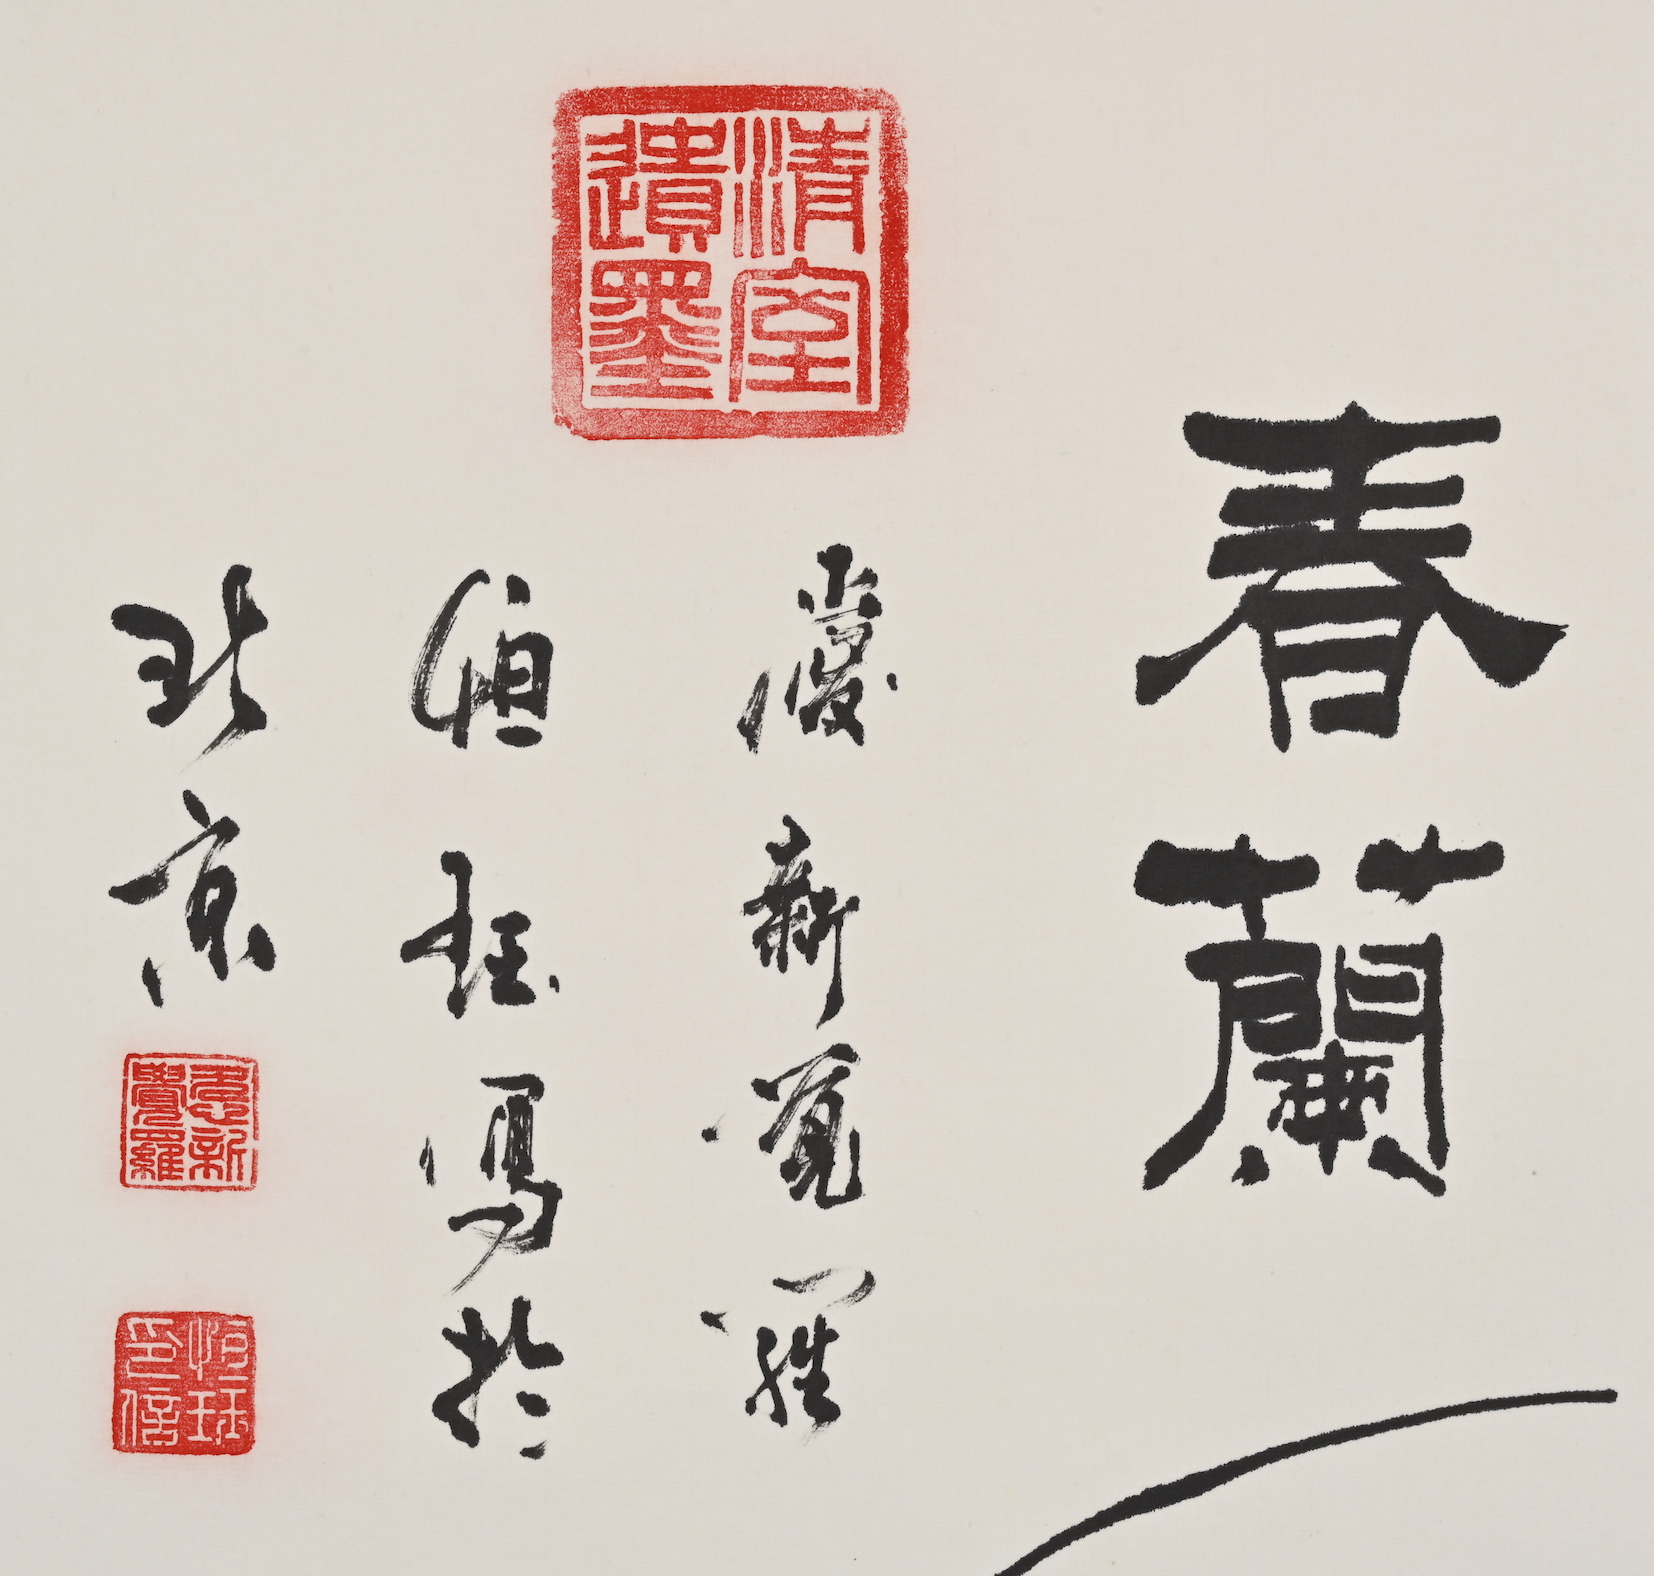 春蘭
清室
遺墨
愛新覺羅
恒珏寫於
北京
愛新
覺羅
恒珏
印信